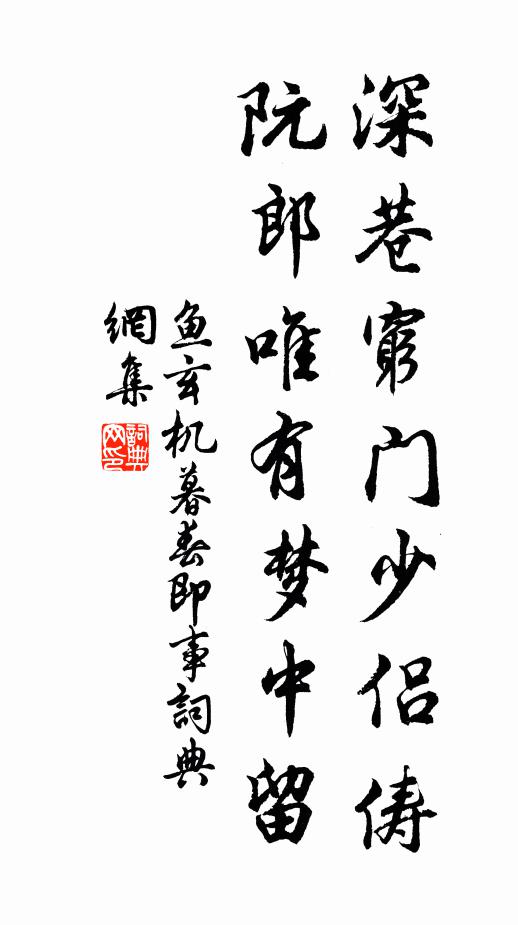 深巷窮门少侣俦
阮郎唯有梦中留
鱼玄机暮春即事詞典
網集
詞典
网印